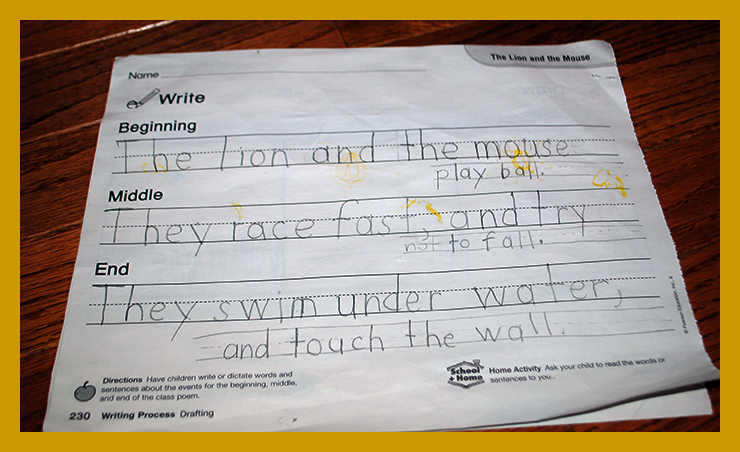 The Lion and the Mouse
Name
Write
Beginning
The lion and the mouse
play ball.
Middle
They race fast, and try
not to fall.
End
They swim under water,
and touch the wall.
Directions Have children write or dictate words and
sentences about the events for the beginning, middle,
and end of the class poem.
School
+ Home
Home Activity Ask your child to read the words or
sentences to you.
230 Writing Process Drafting